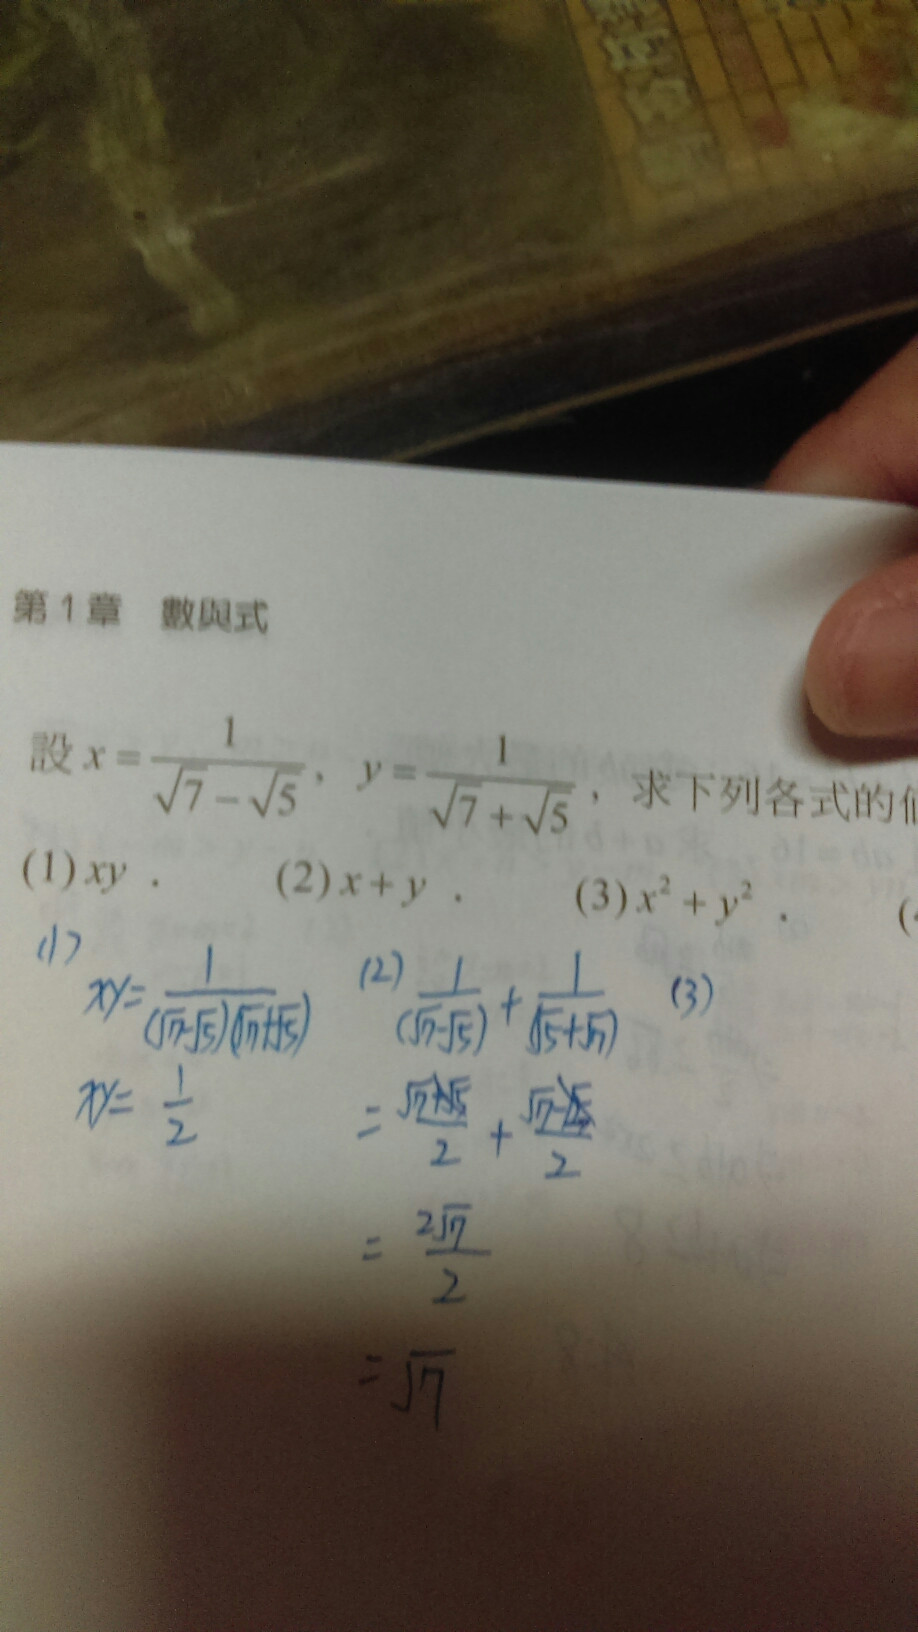 第1章 數與式
設 x = 1/(√7 − √5), y = 1/(√7 + √5), 求下列各式的
(1) xy . (2) x + y . (3) x² + y² .
(1) xy = 1/((√7−√5)(√7+√5)) (2) 1/(√7−√5) + 1/(√5+√7) (3)
xy = 1/2 = (√7+√5)/2 + (√7−√5)/2
= 2√7/2
= √7